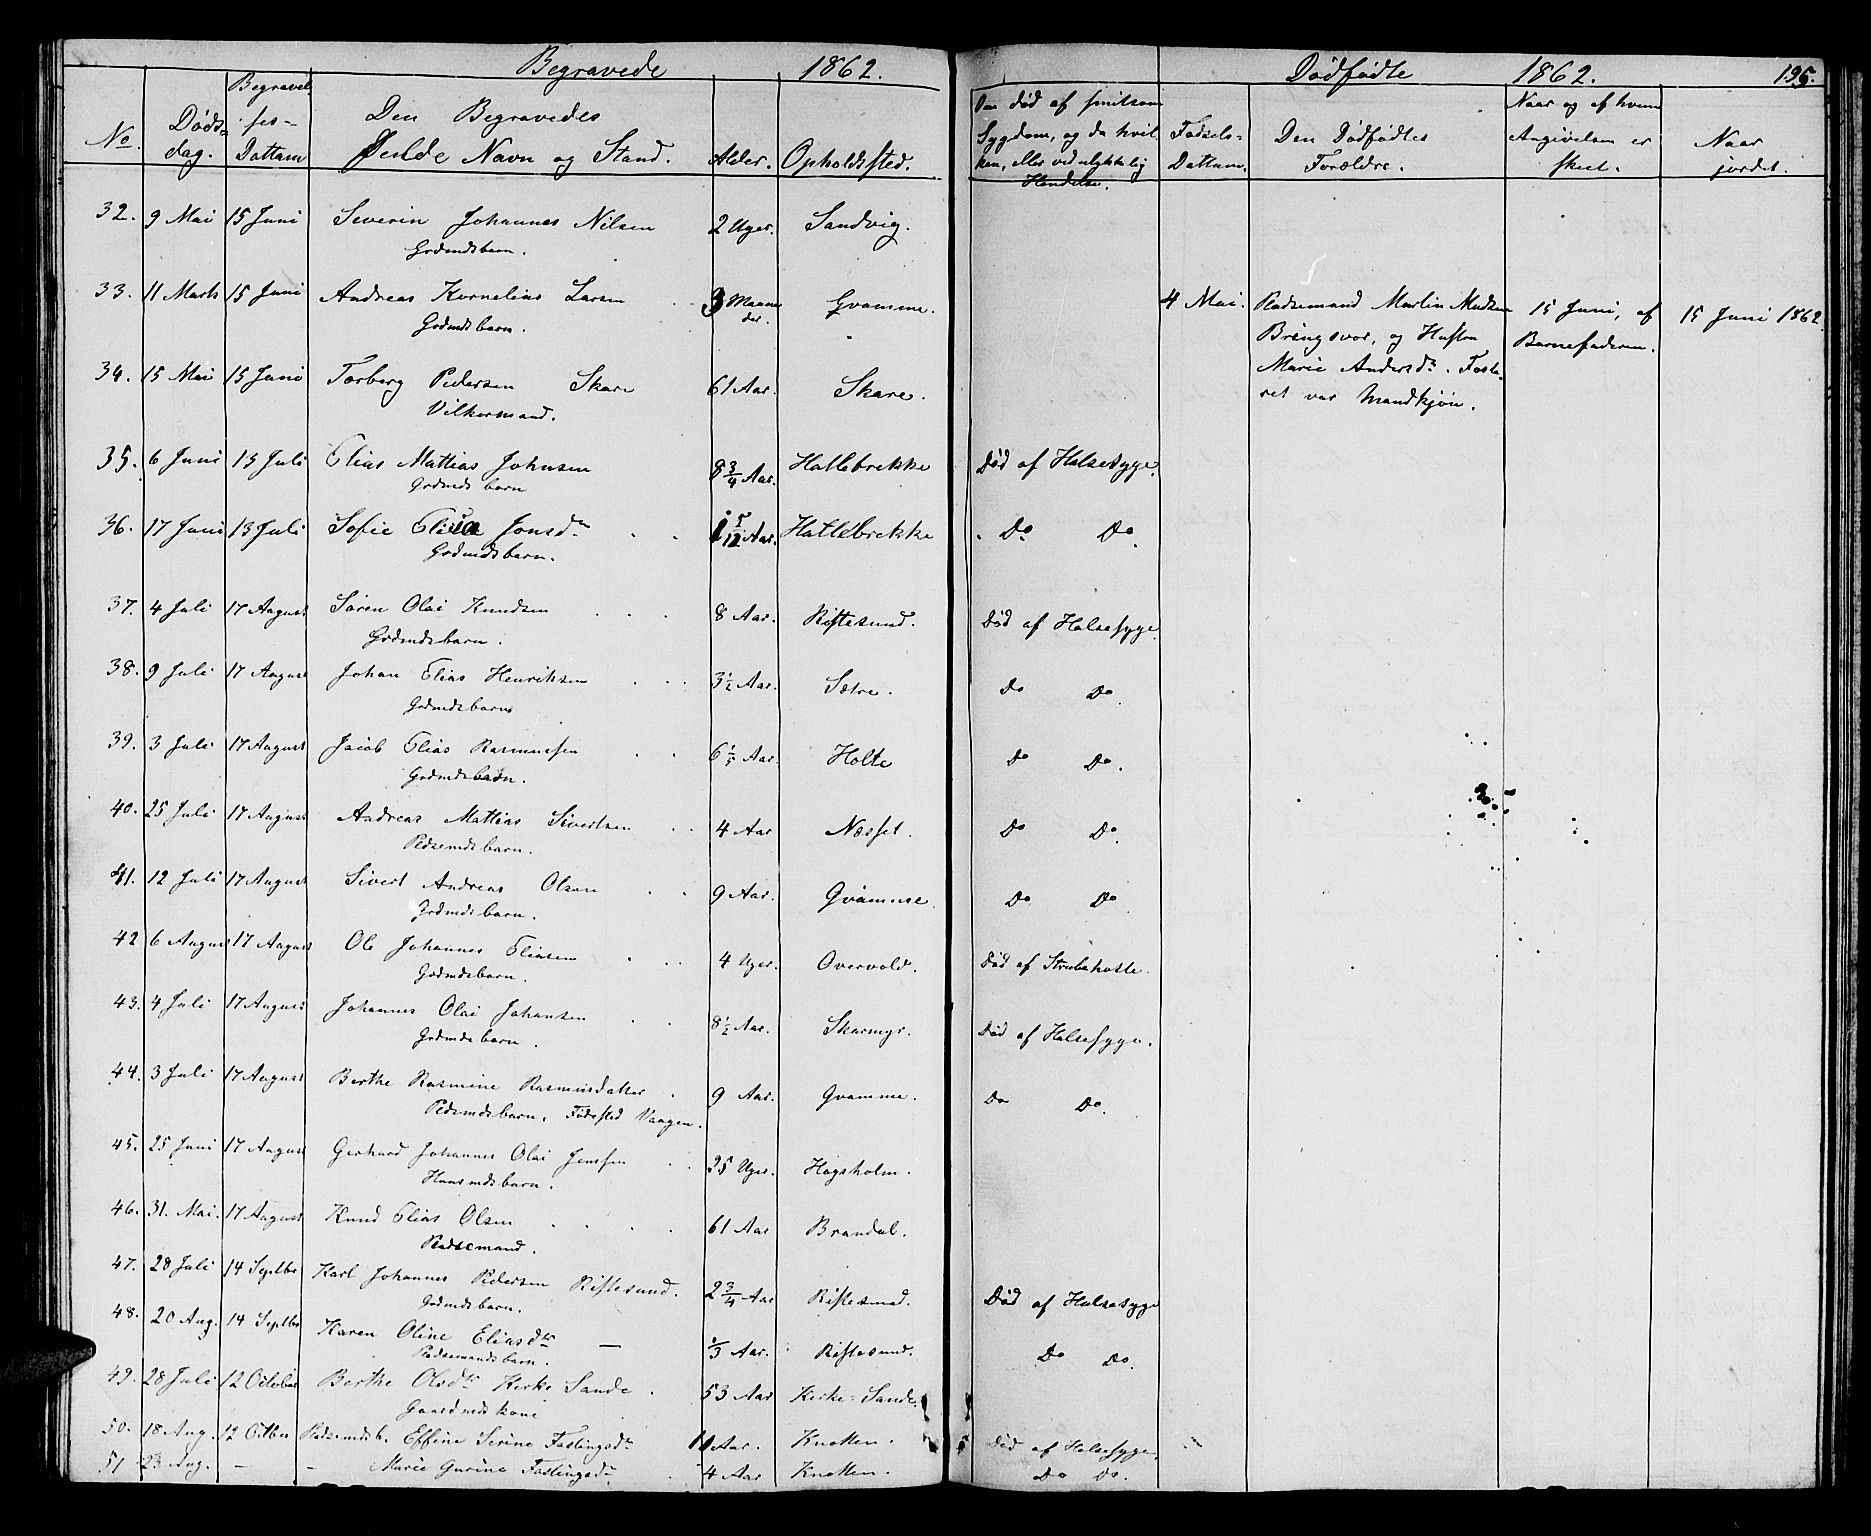 Begravede 1862.
No. Døds-dag. Begravelses-Dattum Den Begravedes Fulde Navn og Stand. Alder. Opholdssted. Om død af smitsom Sygdom, og da hvilken, eller ved ulykkelig Hendelse.
32. 9 Mai 15 Juni Severin Johannes Nilsen 2 Uger. Sandvig.
Grdmdsbarn.
33. 11 Marts 15 Juni Andreas Kornelius Larsen 3 Maaneder. Gvamme.
Grdmdsbarn.
34. 15 Mai 15 Juni Torberg Pedersen Skare 61 Aar. Skare.
Vilkormand.
35. 6 Juni 13 Juli Elias Mattias Johnsen 8 3/4 Aar. Hallebrekke Død af Halsesyge.
Grdmds barn
36. 17 Juni 13 Juli Sofie Elisa Jonsdtr 1 5/12 Aar. Hallebrekke Do Do.
Grdmdsbarn.
37. 4 Juli 17 August Søren Olai Knudsen 8 Aar. Riftesund. Død af Halsesyge.
Grdmdsbarn.
38. 9 Juli 17 August Johan Elias Henriksen 3 1/2 Aar. Sætre. Do Do.
Grdmdsbarn
39. 3 Juli 17 August Jacob Elias Rasmussen 6 Aar. Holte Do Do.
Grdmdsbarn.
40. 25 Juli 17 August Andreas Mattias Sivertsen 4 Aar Næsset. Do Do.
Pdsemdsbarn.
41. 12 Juli 17 August Sivert Andreas Olsen 9 Aar. Gvamme. Do Do.
Grdmdsbarn.
42 6 August 17 August Ole Johannes Eliasen 4 Uger. Overvold. Død af Strubehoste.
Grdmdsbarn.
43. 4 Juli 17 August Johannes Olai Johansen 8 1/2 Aar. Skarmyr. Død af Halsesyge.
Grdmdsbarn.
44. 3 Juli 17 August Berthe Rasmine Rasmusdatter 9 Aar. Gvamme. Do Do.
Pdsemdsbarn. Fødested Vaagen.
45. 25 Juni 17 August Gerhard Johannes Olai Jenssen 25 Uger. Høgsholm.
Huusmdsbarn.
46. 31. Mai. 17 August Knud Elias Olsen 61 Aar Brandal.
Pladsemand.
47. 28 Juli 14 Septbr Karl Johannes Pedersen Riftesund. 2 3/4 Aar Riftesund. Død af Halsesyge
Grdmdsbarn.
48. 20 Aug. 14 Septbr Karen Oline Eliasdtr — 1/3 Aar. Riftesund. Do Do.
Pladsemandsbarn.
49. 28 Juli 12 October Berthe Olsdtr Kirke Sande. 53 Aar Kirke-Sande.
Gaardmdskone
50. 18 Aug. 12 Octber Pladsemdsb. Effine Serine Fastingsdtr 11 Aar. Knotten. Død af Halsesyge.
51 23 Aug. — — Marie Gurine Fastingsdtr 4 Aar Knotten. Do Do.
Dødfødte 1862. 195.
Fødsels-Dattum. Den Dødfødtes Forældre. Naar og af hvem Angivelsen er skeet. Naar jordet.
4 Mai. Pladsemand Martin Madsen 15 Juni, af 15 Juni 1862.
Bringsvor, og Hustru Barnefaderen.
Marie Andersdtr. Foste-
ret var Mandkjøn.